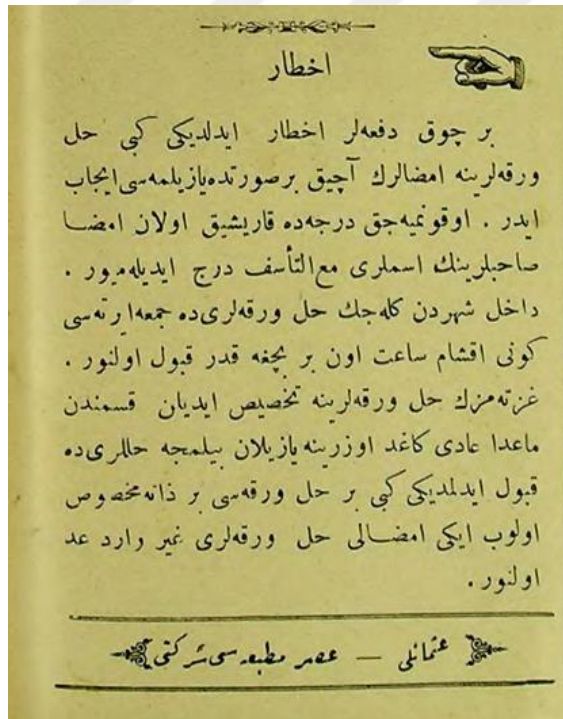 اخطار
بر چوق دفعه‌لر اخطار ایدلدیكی كبی حل
ورقه‌لرینه امضالرك آچیق برصورتده‌یازیلمه‌سی ایجاب
ایدر . اوقونمیه‌جق درجه‌ده قاریشیق اولان امضا
صاحبلرینك اسملری مع‌التأسف درج ایدیله‌میور .
داخل شهردن كله‌جك حل ورقه‌لری‌ده جمعه‌ایرته‌سی
كونی اقشام ساعت اون بر بچغه قدر قبول اولنور .
غزته‌مزك حل ورقه‌لرینه تخصیص ایدیان قسمندن
ماعدا عادی كاغد اوزرینه یازیلان بیلمجه حللری‌ده
قبول ایدلمدیكی كبی بر حل ورقه‌سی بر ذاته مخصوص
اولوب ایكی امضالی حل ورقه‌لری غیر وارد عد
اولنور .
عثمانلی — عصر مطبعه‌سی شركتی